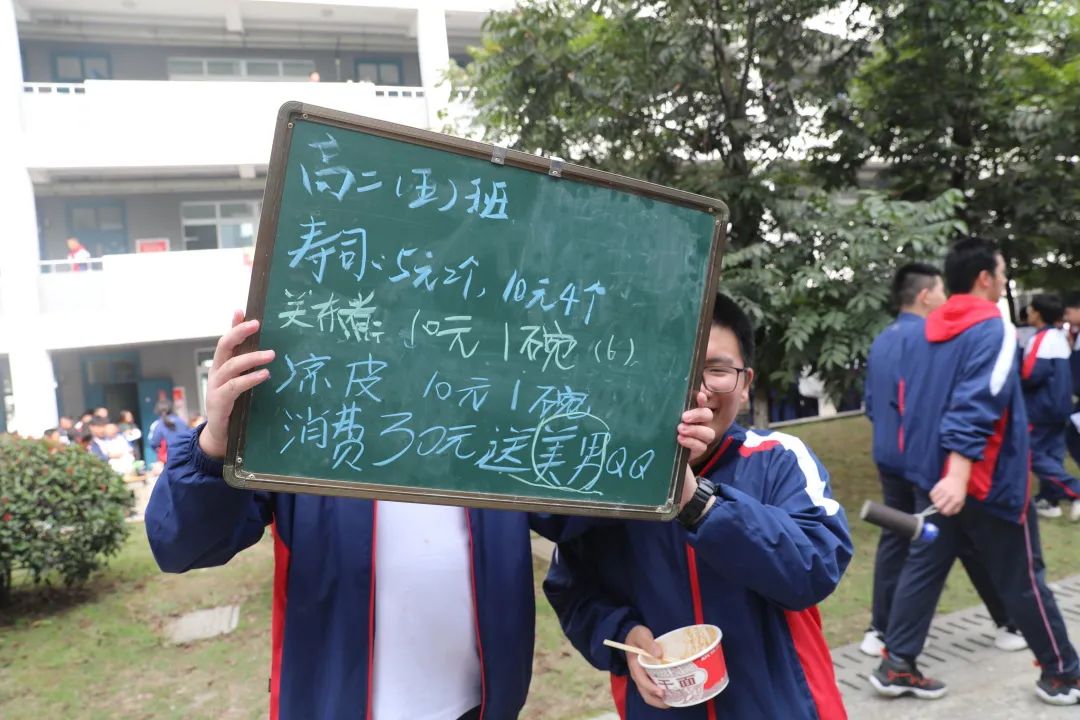 高二(五)班
寿司:5元2个,10元4个
关东煮:10元1碗(6)
凉皮 10元1碗
消费30元送美男QQ
干面